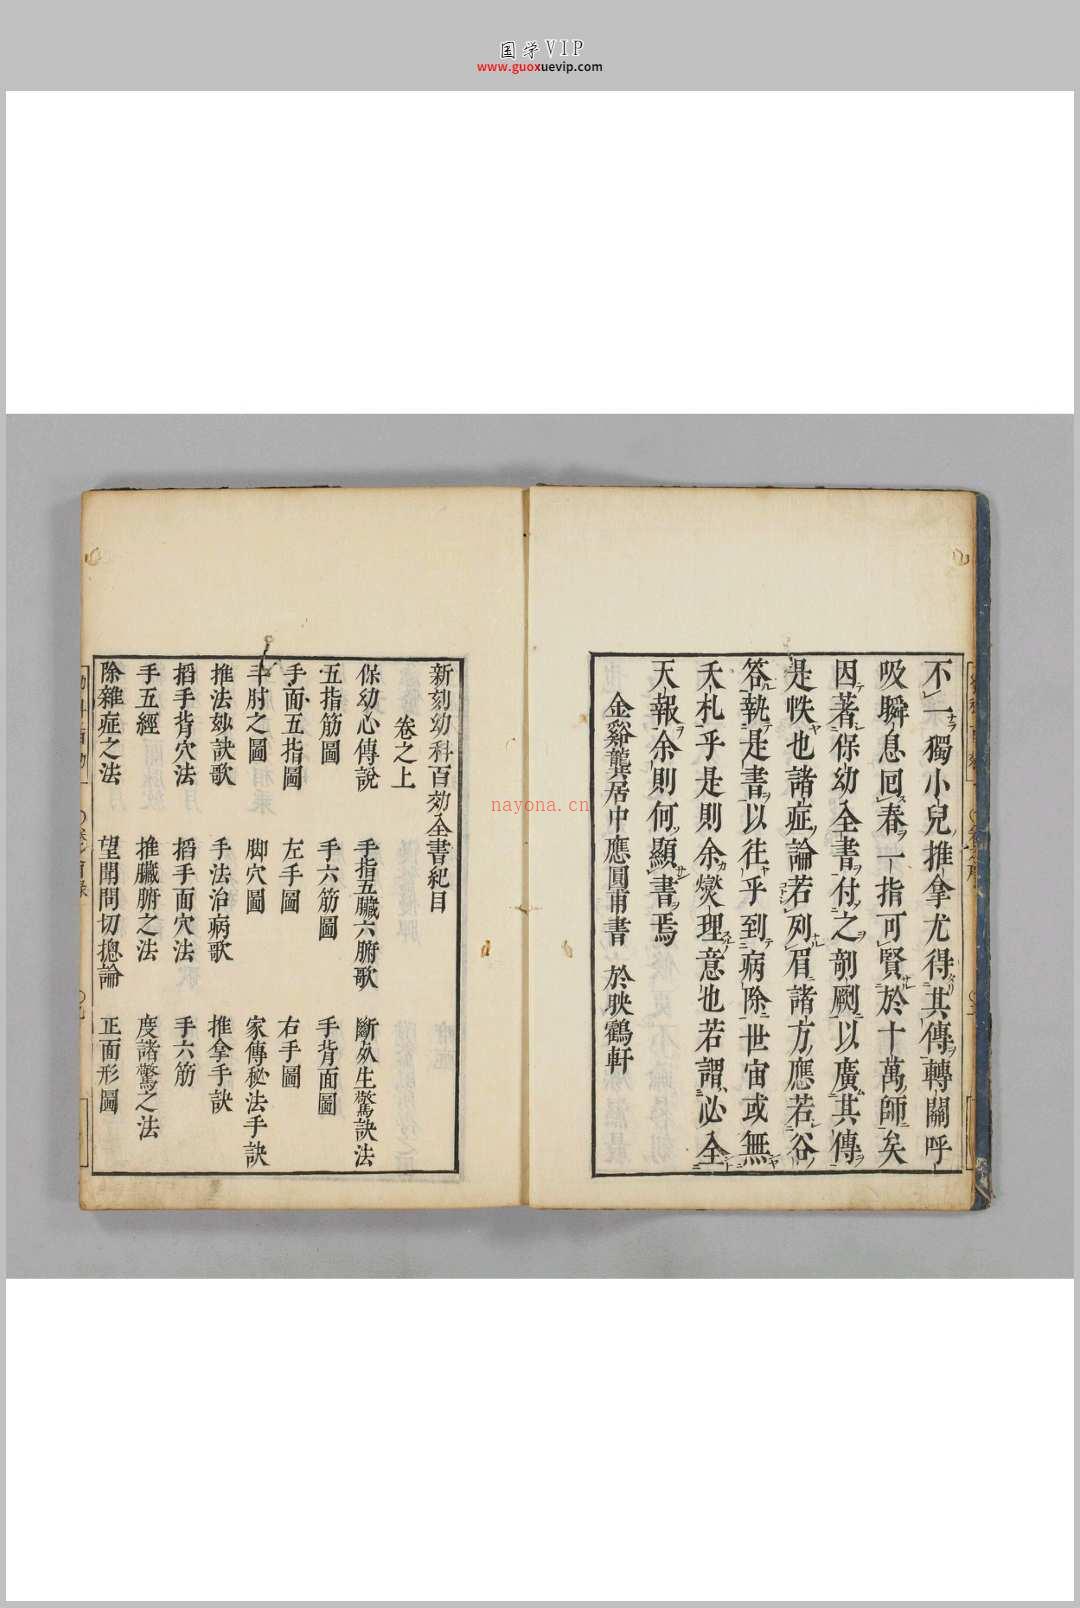 国学VIP
www.guoxuevip.com
不一獨小兒推拿尤得其傳轉關呼
吸瞬息回春一指可賢於十萬師矣
因著保幼全書付之剞劂以廣其傳
是帙也諸症論若列眉諸方應若谷
答執是書以往乎到病除世宙或無
夭札乎是則余爕理意也若謂必全
天報余則何顯書焉
金谿龔居中應圓甫書 於映鶴軒
新刻幼科百効全書紀目
卷之上
保幼心傳說 手指五臟六腑歌 斷夗生驚訣法
五指筋圖 手六筋圖 手背面圖
手面五指圖 左手圖 右手圖
手肘之圖 脚穴圖 家傳秘法手訣
推法妙訣歌 手法治病歌 推拿手訣
搯手背穴法 搯手面穴法 手六筋
手五經 推臟腑之法 度諸驚之法
除雜症之法 望聞問切摠論 正面形圖
nayona.cn